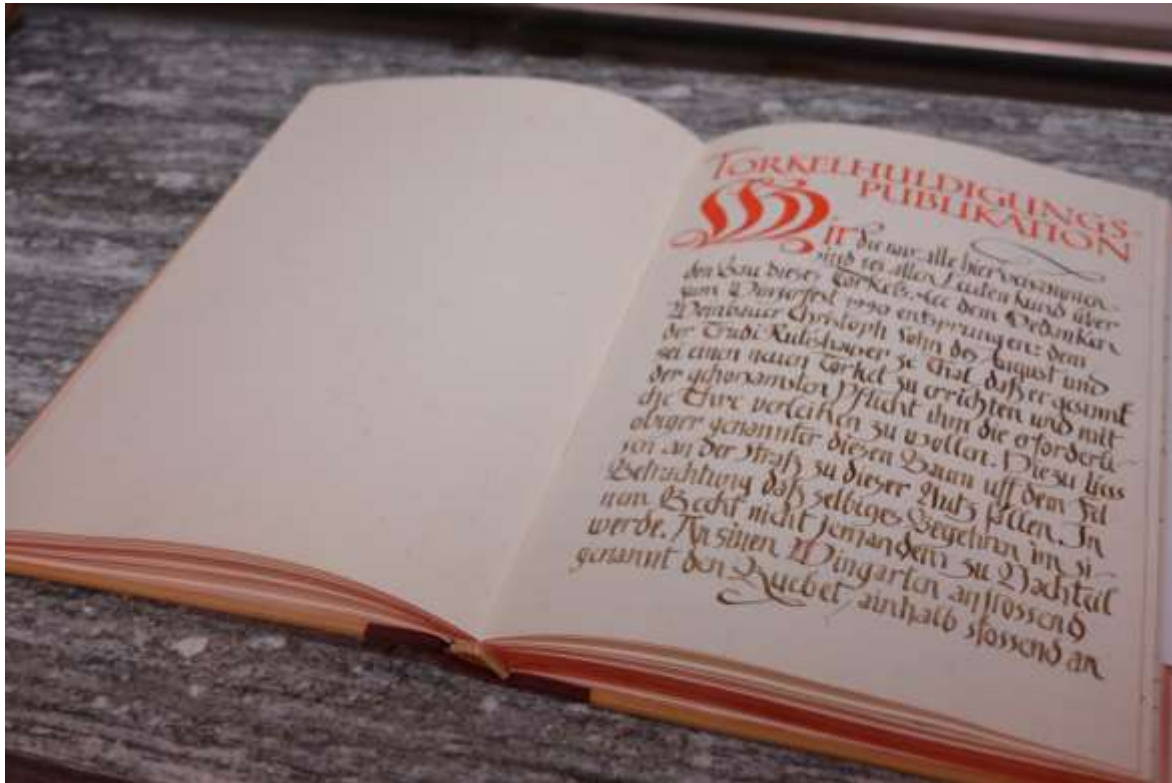 TORKELHULDIGUNGS-
PUBLIKATION
Wir die wir alle hier versammen
sind sei allen Leuten kund über
den Bau dieses Torkels. dem Gedanken
vom Winzerfest 1990 entsprungen: dem
Weinbauer Christoph Sohn des August und
der Trudi ze Thal, daß er gesinnt
sei einen neuen Torkel zu errichten und mit
der gehorsamsten Pflicht ihm die erforderli-
che Ehre verleihen zu wollen. Hiezu liess
obiger genannter diesen Baum uff dem Fil
sen an der Straß zu dieser Nutz fällen. In
Betrachtung daß selbiges Begehren im si-
nem Recht nicht jemandem zu Nachteil
werde. An sinen Wingarten anstossend
genannt den Buchet ainhalb stossend an